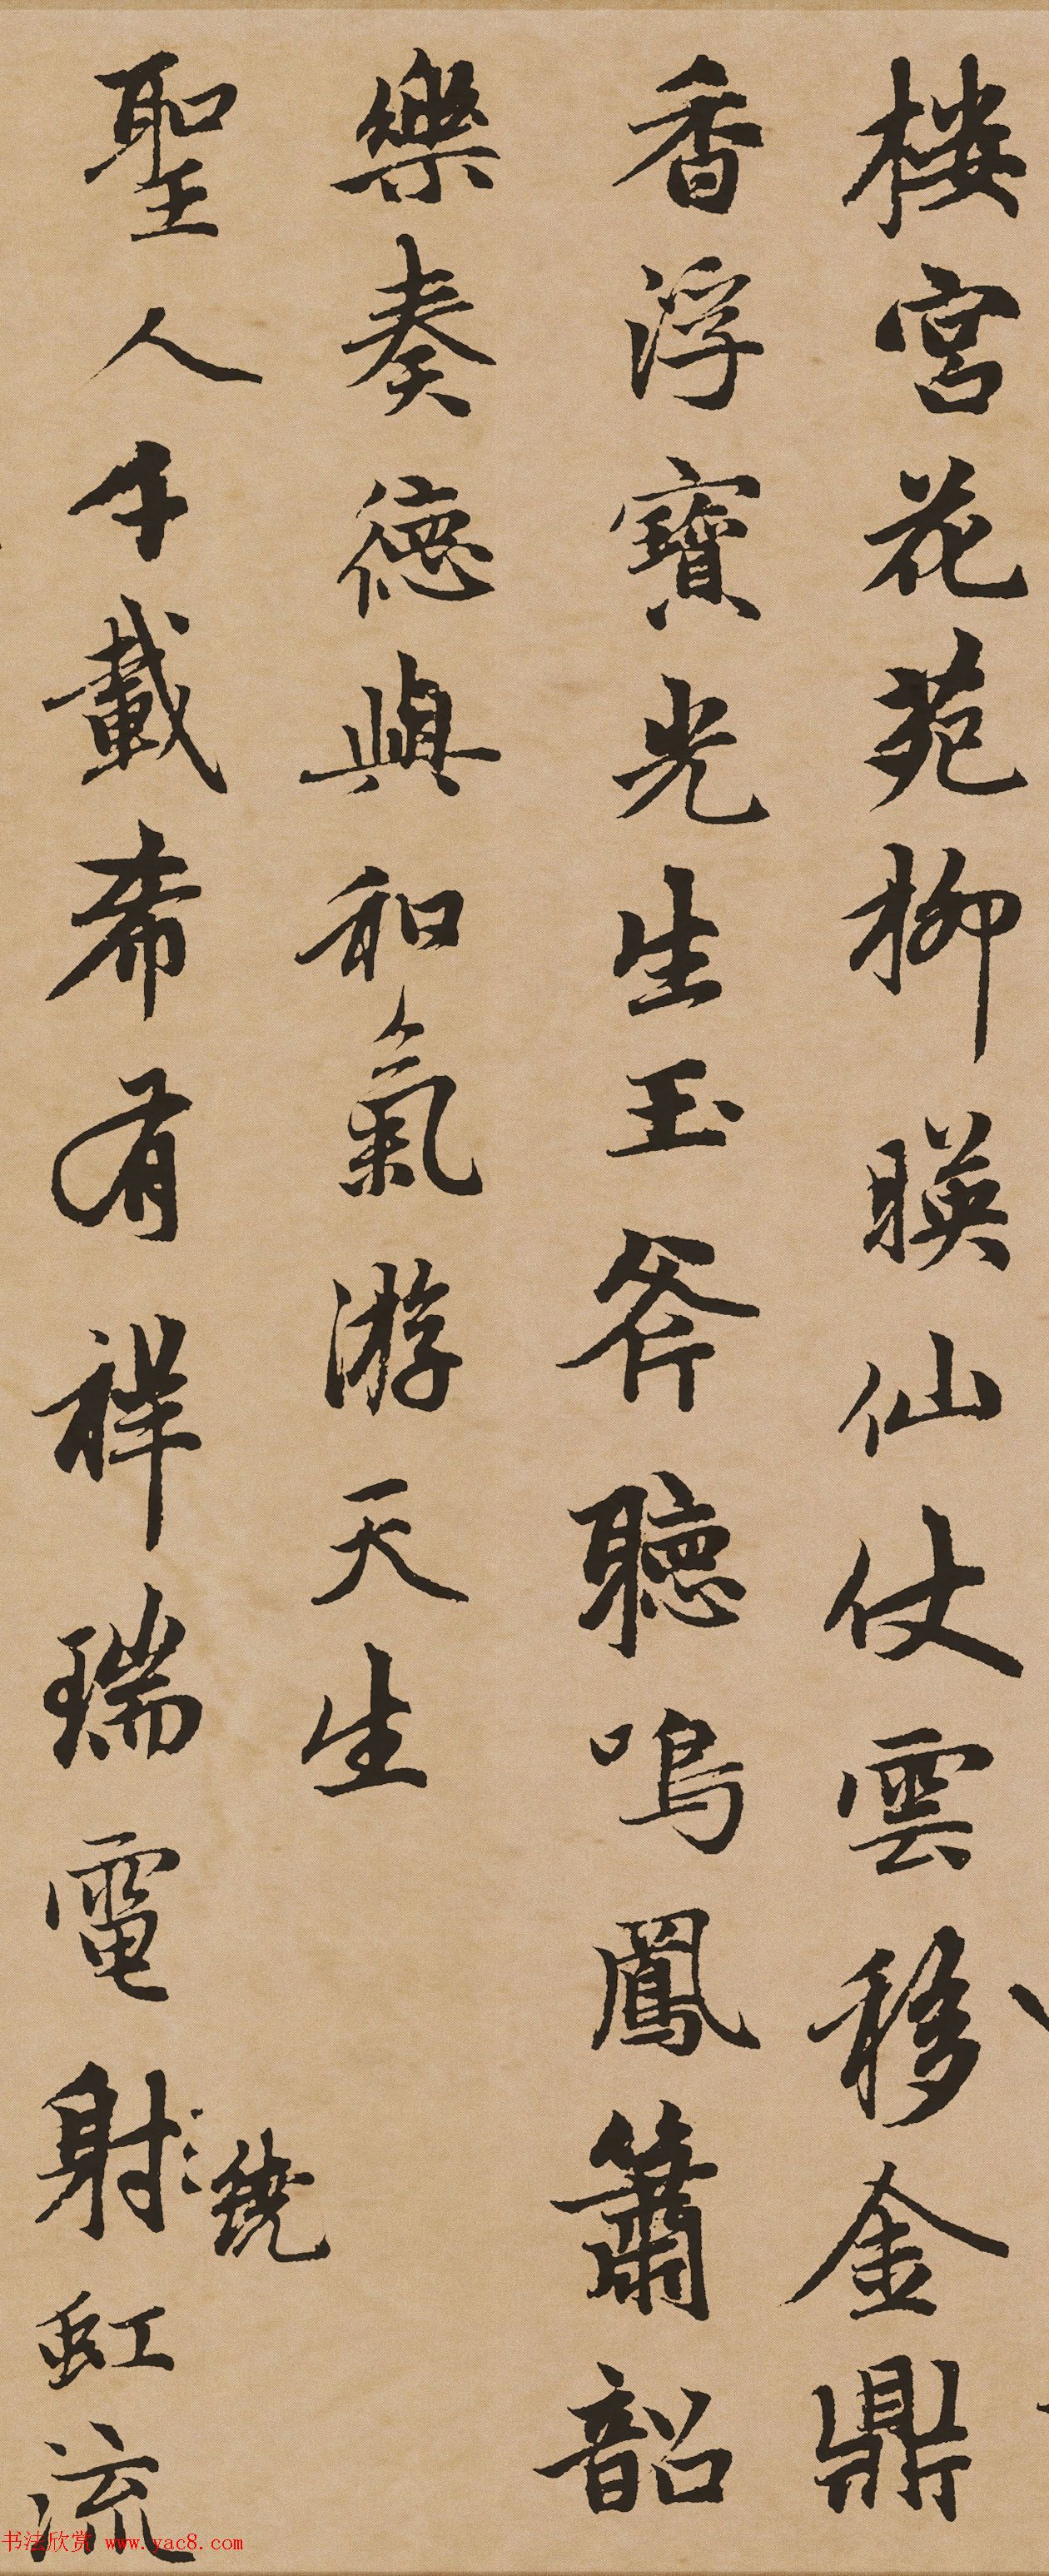 楼宫花苑柳暎仙仗雲移金鼎
香浮寶光生玉斧聽鳴鳳簫韶
樂奏德與和氣游天生
聖人千載希有祥瑞電射繞虹流
书法欣赏 www.yac8.com